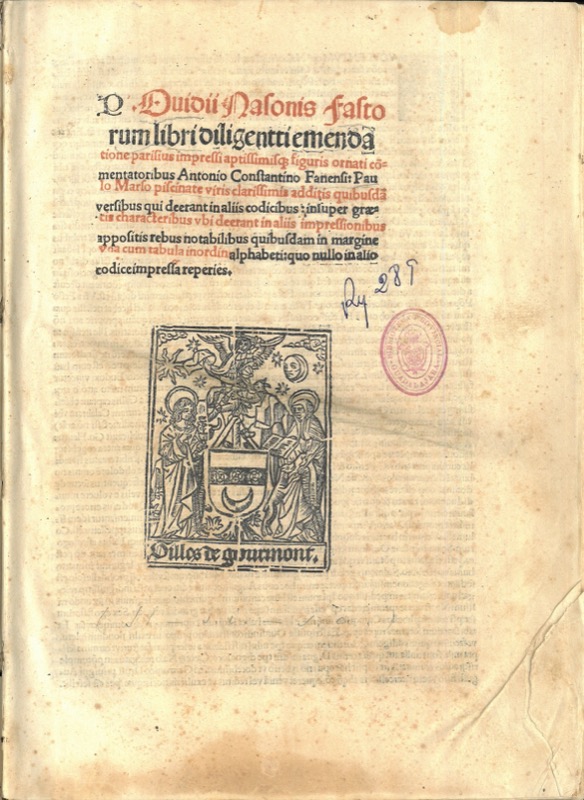 P. Ouidii Nasonis Fasto
rum libri diligentti emendā
tione parisius impressi aptissimisq; figuris ornati cō-
mentatoribus Antonio Constantino Fanensi: Pau
lo Marso piscinate viris clarissimis additis quibusdā
versibus qui deerant in aliis codicibus: insuper græ-
cis characteribus vbi deerant in aliis impressionibus
appositis rebus notabilibus quibusdam in margine
Vna cum tabula in ordin alphabeti: quo nullo in alio
codice impressa reperies.
Ry 289
Gilles de gourmont.